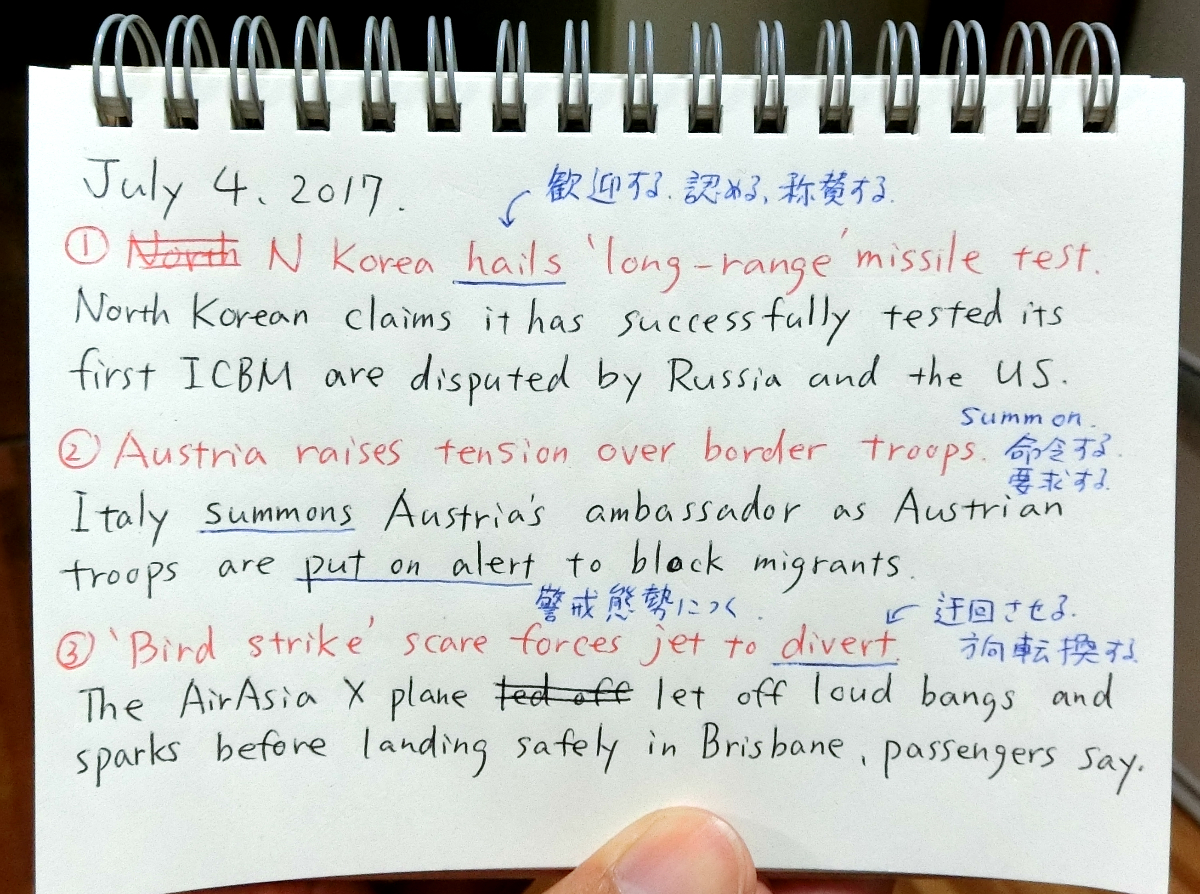 July 4、2017.
歓迎する、認める、称賛する.
① North N Korea hails 'long-range' missile test.
North Korean claims it has successfully tested its
first ICBM are disputed by Russia and the US.
summon.
② Austria raises tension over border troops. 命令する.
要求する.
Italy summons Austria's ambassador as Austrian
troops are put on alert to block migrants.
警戒態勢につく. 迂回させる.
③ 'Bird strike' scare forces jet to divert. 方向転換する
The AirAsia X plane ted off let off loud bangs and
sparks before landing safely in Brisbane, passengers say.